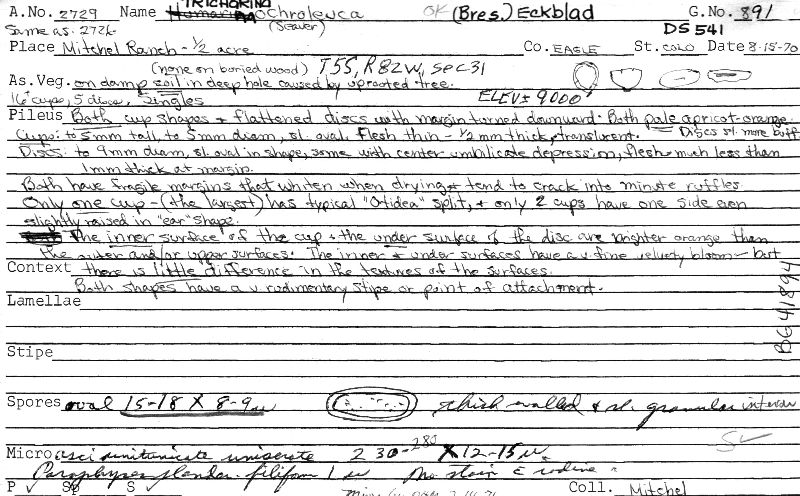 A.No. 2729 Name TRICHARINA OCHROLEUCA OK (Bres.) Eckblad G.No. 891
Same as. 2726 (Seaver) DS 541
Place Mitchel Ranch - 1/2 acre Co. EAGLE St. COLO Date 8-15-70
(none on buried wood) T5S, R82W, Sec 31
As. Veg. on damp soil in deep hole caused by uprooted tree.
16 cups, 5 discs, Singles ELEV ± 9000'
Pileus Both cup shapes & flattened discs with margin turned downward. Both pale apricot-orange.
Cups: to 5mm tall, to 5mm diam, sl. oval. Flesh thin - 1/2 mm thick, translucent. Discs sl. more buff
Discs: to 9mm diam, sl. oval in shape, some with center umbilicate depression, flesh much less than
1mm thick at margin.
Both have fragile margins that whiten when drying & tend to crack into minute ruffles
Only one cup - (the largest) has typical "Otidea" split, & only 2 cups have one side even
slightly raised in "ear" shape.
The inner surface of the cup & the under surface of the disc are brighter orange than
the outer and/or upper surfaces. The inner & under surfaces have a v. fine velvety bloom - but
Context there is little difference in the textures of the surfaces.
Both shapes have a v rudimentary stipe or point of attachment.
Lamellae
BG41894
Stipe
Spores oval 15-18 X 8-9 u thick walled & sl. granular interior
Micro asci unitunicate uniserate 230-280 X 12-15 u
Paraphyses slender filiform 1 u no stain c iodine
P Sp S Coll. Mitchel